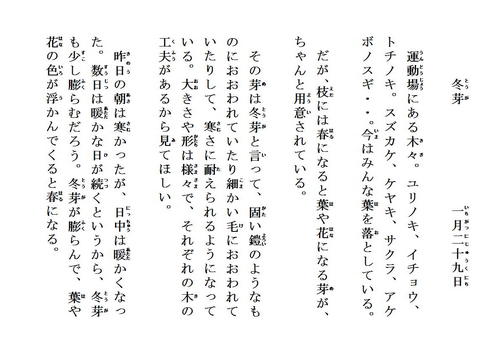 冬芽　一月二十九日
運動場にある木々。ユリノキ、イチョウ、
トチノキ。スズカケ、ケヤキ、サクラ、アケ
ボノスギ・・。今はみんな葉を落としている。
だが、枝には春になると葉や花になる芽が、
ちゃんと用意されている。
その芽は冬芽と言って、固い鎧のようなも
のにおおわれていたり細かい毛におおわれて
いたりして、寒さに耐えられるようになって
いる。大きさや形は様々で、それぞれの木の
工夫があるから見てほしい。
昨日の朝は寒かったが、日中は暖かくなっ
た。数日は暖かな日が続くというから、冬芽
も少し膨らむだろう。冬芽が膨らんで、葉や
花の色が浮かんでくると春になる。